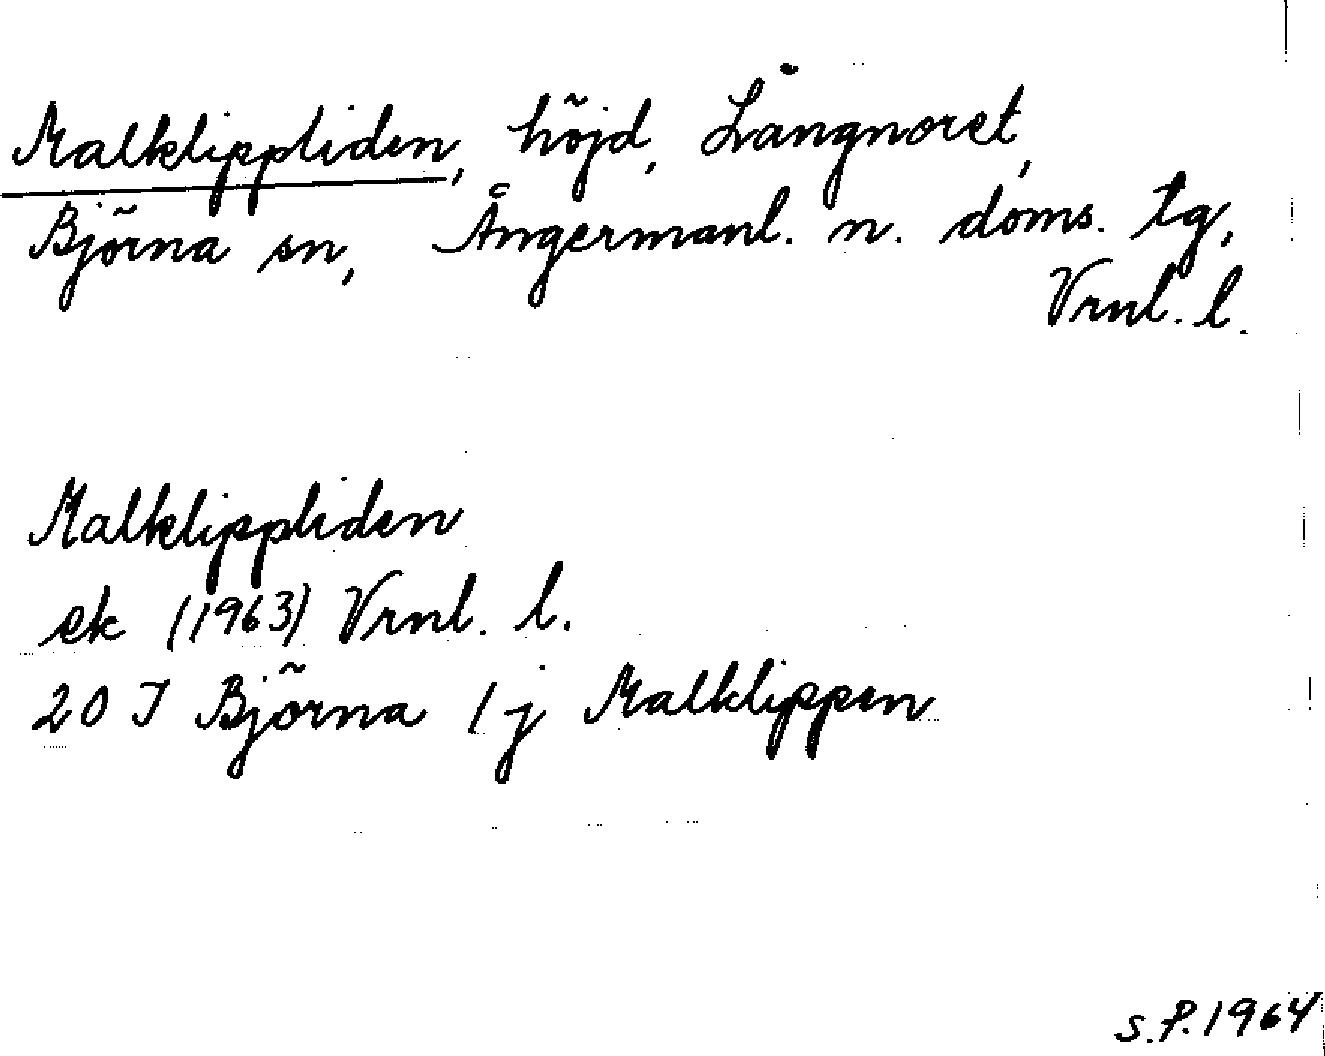 Malklippliden, höjd, Långnoret,
Björna sn, Ångermanl. n. doms. tg,
Vrnl. l.
Malklippliden
ek (1963) Vrnl. l.
20 I Björna 1 j Malklippen
S.P. 1964